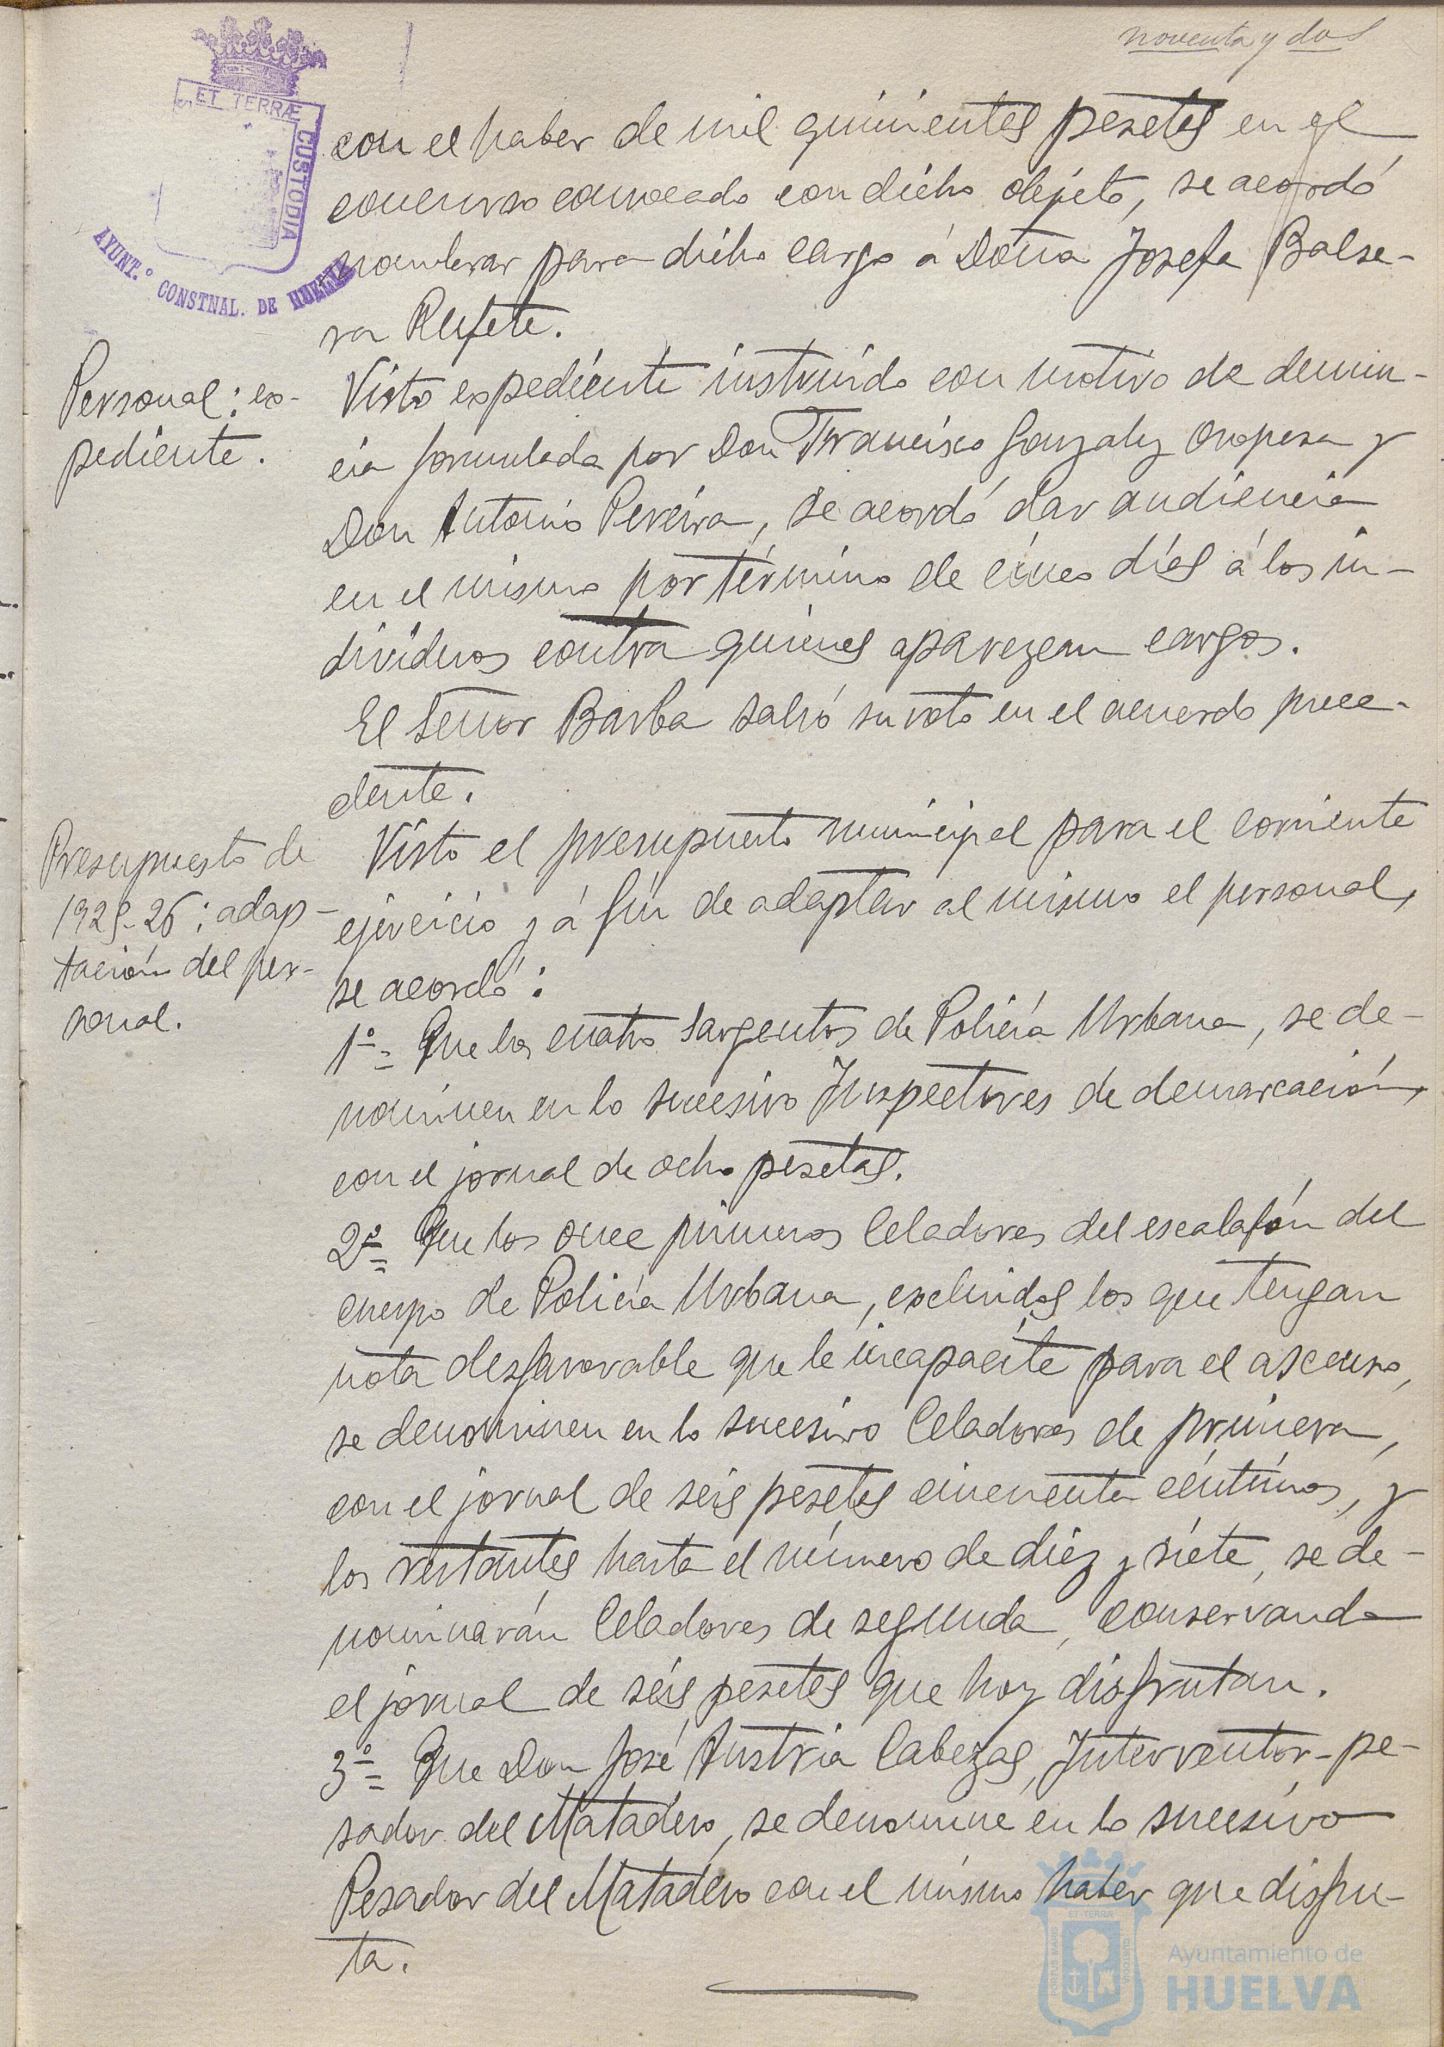 noventa y dos
ET TERRÆ CUSTODIA
AYUNT.º CONSTNAL. DE HUELVA
con el haber de mil quinientas pesetas en el
concurso convocado con dicho objeto, se acordó
nombrar para dicho cargo á Doña Josefa Balse-
ra Rufete.
Personal: ex-
pediente.
Visto expediente instruido con motivo de denun-
cia formulada por Don Francisco González Oropesa y
Don Antonio Pereira, se acordó dar audiencia
en el mismo por término de cinco días á los in-
dividuos contra quienes aparezcan cargos.
El Señor Barba salvó su voto en el acuerdo prece-
dente.
Presupuesto de
1925-26: adap-
tación del per-
sonal.
Visto el presupuesto municipal para el corriente
ejercicio y á fin de adaptar al mismo el personal,
se acordó:
1º= Que los cuatro Sargentos de Policía Urbana, se de-
nominen en lo sucesivo Inspectores de demarcación,
con el jornal de ocho pesetas.
2º= Que los once primeros Celadores del escalafón del
cuerpo de Policía Urbana, excluidos los que tengan
nota desfavorable que le incapacite para el ascenso,
se denominen en lo sucesivo Celadores de primera,
con el jornal de seis pesetas cincuenta céntimos, y
los restantes hasta el número de diez y siete, se de-
nominarán Celadores de segunda, conservando
el jornal de seis pesetas que hoy disfrutan.
3º= Que Don José Austria Cabezas, Interventor-pe-
sador del Matadero, se denomine en lo sucesivo
Pesador del Matadero con el mismo haber que disfru-
ta.
Ayuntamiento de
HUELVA